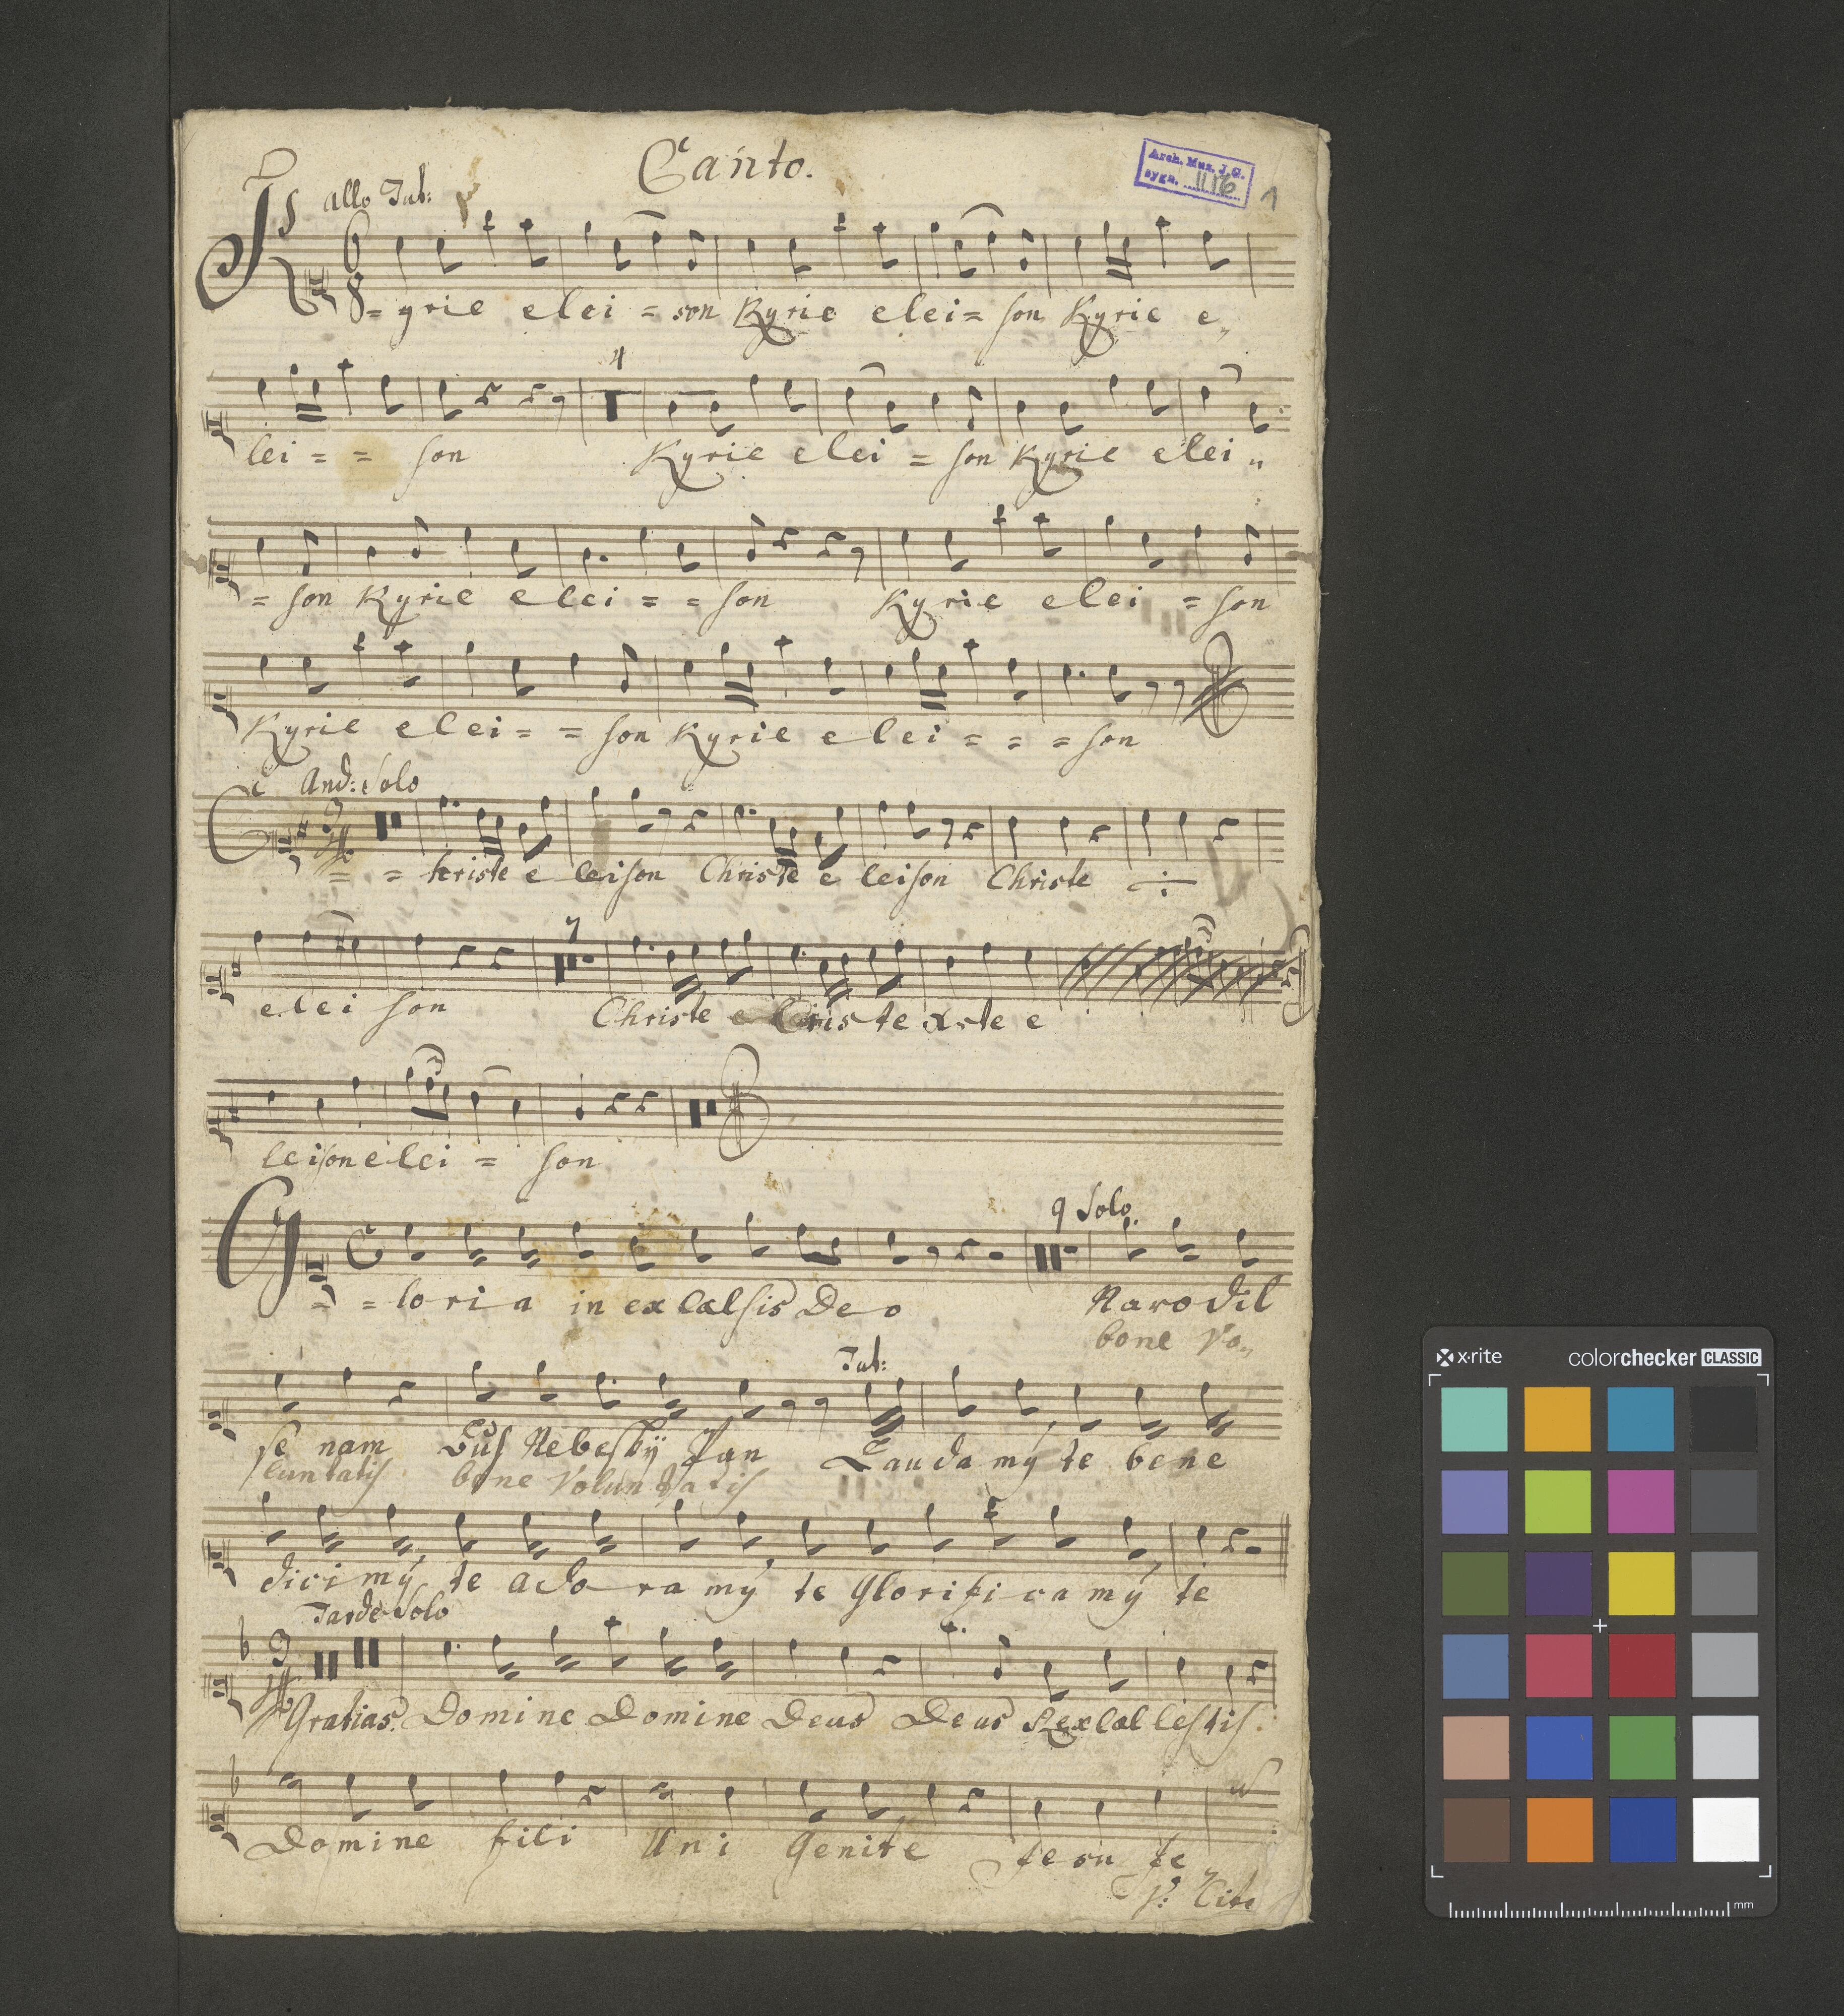 Canto.
Arch. Muz. J. G.
sygn. II 16
1
allo Tut:
K = yrie elei = son Kyrie elei = son Kyrie e„
4
lei = = son Kyrie elei = son Kyrie elei „
= son Kyrie elei = = son Kyrie elei = son
Kyrie elei = = son Kyrie elei = = = son
And: Solo
C = = hriste e leison Christe e leison Christe ÷
7
elei son Christe e Cristexste e
leison elei = son
9 Solo.
G = = loria in excælsis Deo Narodil
bone Vo„
Tut:
se nam Bus Nebeskÿ Pan Laudamÿ te bene
luntatis bone Voluntatis
dicimÿ te adoramÿ te Glorificamÿ te
Tarde Solo
Gratias. Domine Domine Deus Deus Rex cælestis.
Domine fili Uni Genite Jesu Je
V: Cito
x·rite
colorchecker CLASSIC
mm